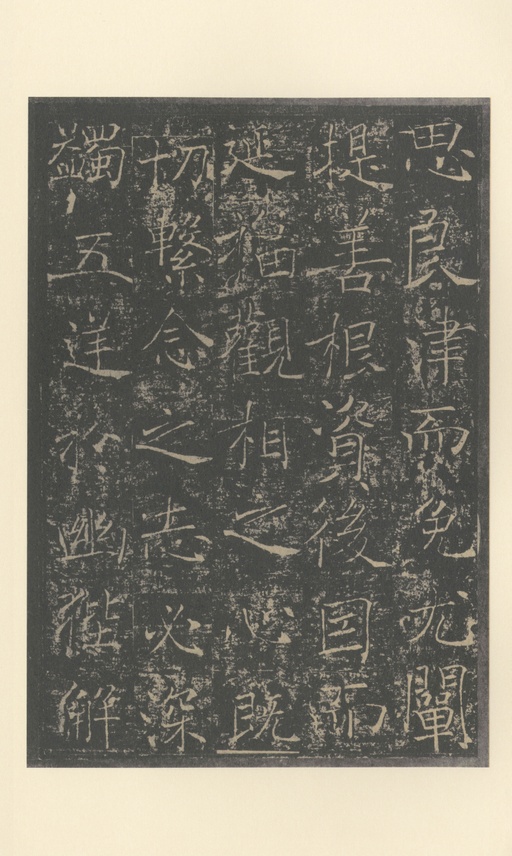 思良津而免尤闡
提善根資後因而
遊福觀相之心既
切繫念之志必深
蠲五逆於幽徃解